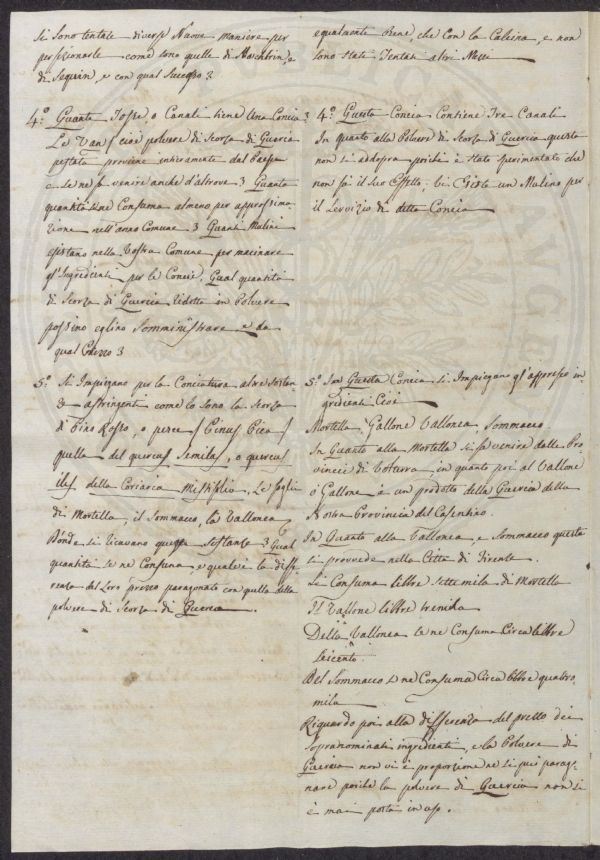 si sono tentate diverse Nuove maniere per
perfezionarle come sono quelle di
di Seguin, e con qual Successo ?
4.º Quante Fosse, o Canali tiene una Concia ?
Le Tan / cioè polvere di Scorza di Guercia
pestata proviene interamente dal Paese
e se ne fa venire anche d'altrove ? Quanta
quantità sene Consuma almeno per approssima
zione nell'anno Comune ? Quanti Mulini
esistano nella Vostra Comune per macinare
gl'Ingredienti per le Concie, Qual quantità
di Scorza di Guercia ridotta in Polvere
possino eglino Somministrare e da
qual Prezzo ?
5.º Si Impiegano per la Conciatura altre Sostan
ze astringenti come lo sono la Scorza
di Pino Rosso, o pesce / Pinus Picea /
quella del quercus Semilas, o quercus
iles della Coriaria Mistiflia, Le foglie
di Mortella, il Sommacco, la Vallonea
D'onde si ricavano queste Sostanze ? Qual
quantità se ne Consuma e qual'è la diffe
renza del Loro prezzo paragonato con quello della
polvere di Scorza di Guercia.
egualmente Bene, che con la Calcina, e non
sono stati Tentati altri Mezzi
4.º Questa Concia Contiene Tre Canali
In quanto alla Polvere di Scorza di Guercia questa
non si addopra poiché è stato sperimentato che
non fà il suo Effetto; Vi Esiste un Mulino per
il Servizio di detta Concia
5.º In Questa Concia si Impiegano gl'appresso in
gredienti Cioè
Mortella, Gallone Vallonea, Sommacco
In Quanto alla Mortella si fà venire dalle Pro
vincie di Volterra, in quanto poi al Vallone
ò Gallone è un prodotto della Guercia della
Nostra Provincia del Casentino.
In Quanto alla Vallonea, e Sommacco questa
si provvede nella Città di Firenze.
Si Consuma libbre sette mila di Mortella
Il Vallone libbre tremila
Della Vallonea se ne Consuma Circa libbre
seicento.
Del Sommacco se ne Consuma Circa libbre quattro
mila
Riguardo poi alla differenza del prezzo dei
sopranominati ingredienti, e la Polvere di
Guercia non vi è proporzione ne si può parago
nare poiché la polvere di Guercia non si
è mai posta in uso.